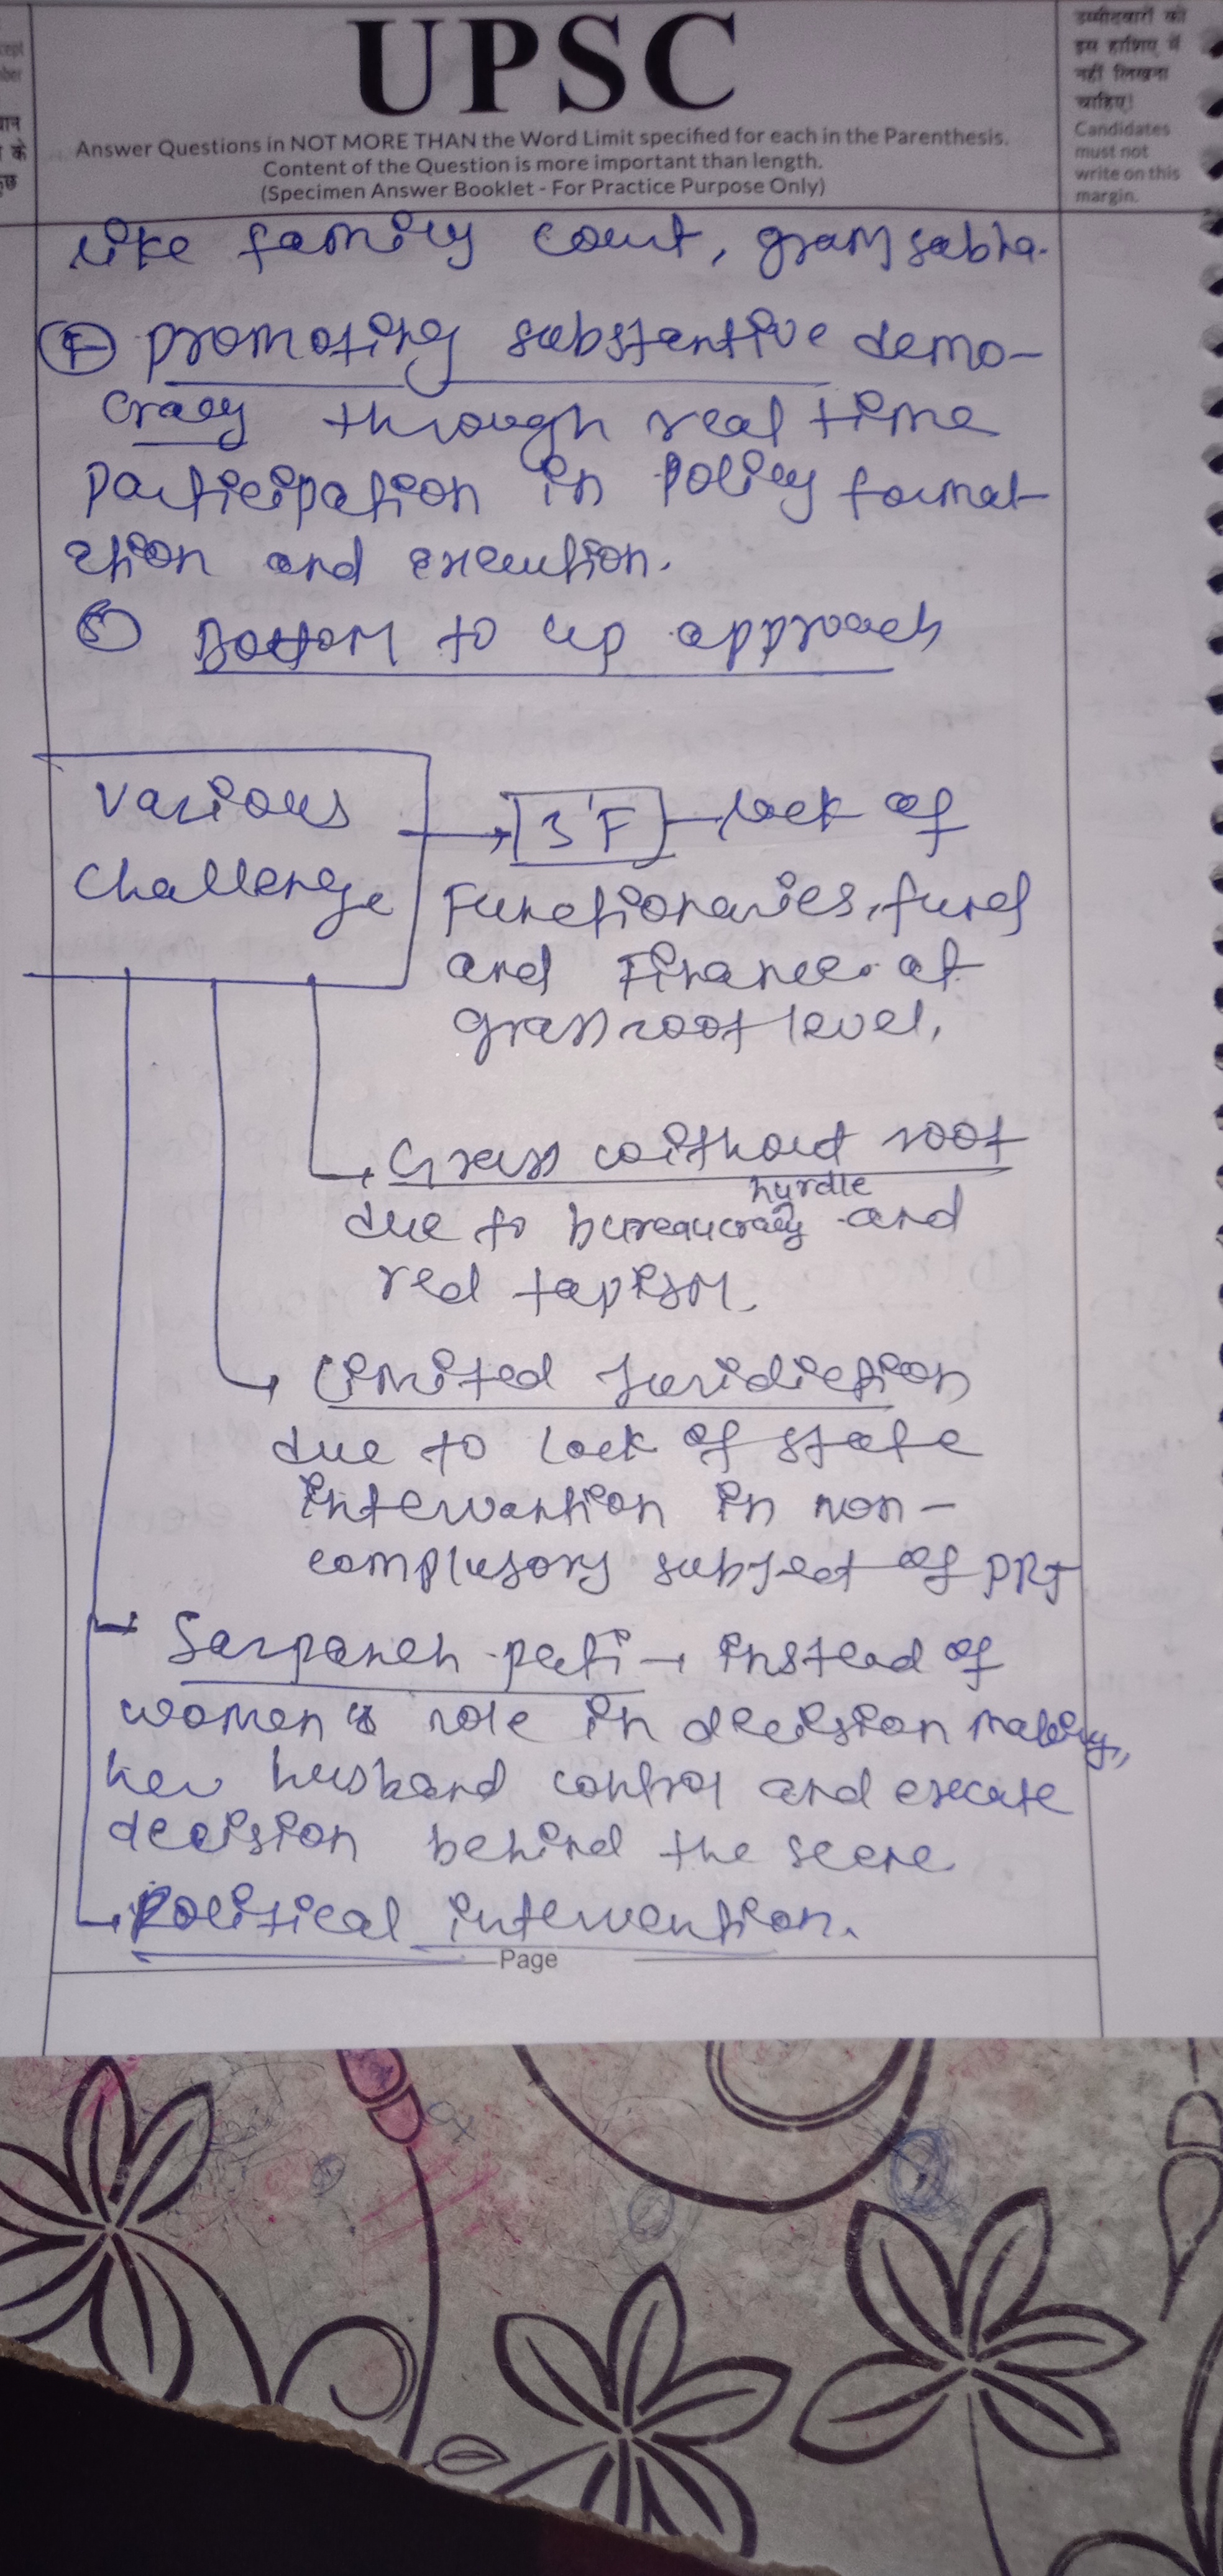 UPSC
Answer Questions in NOT MORE THAN the Word Limit specified for each in the Parenthesis.
Content of the Question is more important than length.
(Specimen Answer Booklet - For Practice Purpose Only)
उम्मीदवारों को
इस हाशिए में
नहीं लिखना
चाहिए।
Candidates
must not
write on this
margin.
like family court, gram sabha.
promoting substantive demo-
cracy through real time
participation in policy format-
ation and execution.
⑤ Bottom to up approach
Various
challenge
3'F - lack of
Functionaries, fund
and Finance at
grassroot level,
Grass without root
due to bureaucracy hurdle and
red tapism.
Limited Juridiction
due to lack of state
intervantion in non-
complusory subject of PRI
Sarpanch-pati → instead of
women's role in decision making,
her husband control and execute
decision behind the scene
Political intervention.
Page